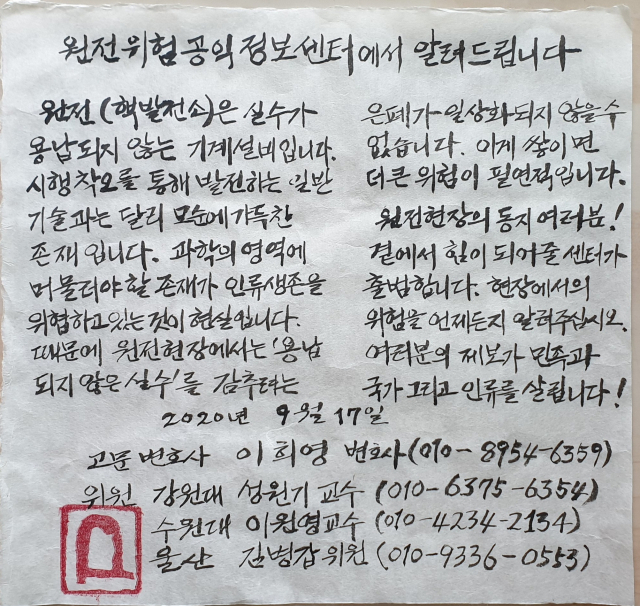 원전위험공익정보센터에서 알려드립니다
원전(핵발전소)은 실수가
용납되지 않는 기계설비입니다.
시행착오를 통해 발전하는 일반
기술과는 달리 모순에 가득찬
존재입니다. 과학의 영역에
머물러야 할 존재가 인류생존을
위협하고 있는 것이 현실입니다.
때문에 원전현장에서는 '용납
되지 않은 실수'를 감추려는
은폐가 일상화되지 않을 수
없습니다. 이게 쌓이면
더 큰 위험이 필연적입니다.
원전현장의 동지 여러분!
곁에서 힘이 되어줄 센터가
출범합니다. 현장에서의
위험을 언제든지 알려주십시오.
여러분의 제보가 민족과
국가 그리고 인류를 살립니다!
2020년 9월 17일
고문 변호사 이희영 변호사 (010-8954-6359)
위원 강원대 성원기 교수 (010-6375-6354)
수원대 이원영 교수 (010-4234-2134)
울산 김병갑 위원 (010-9336-0553)